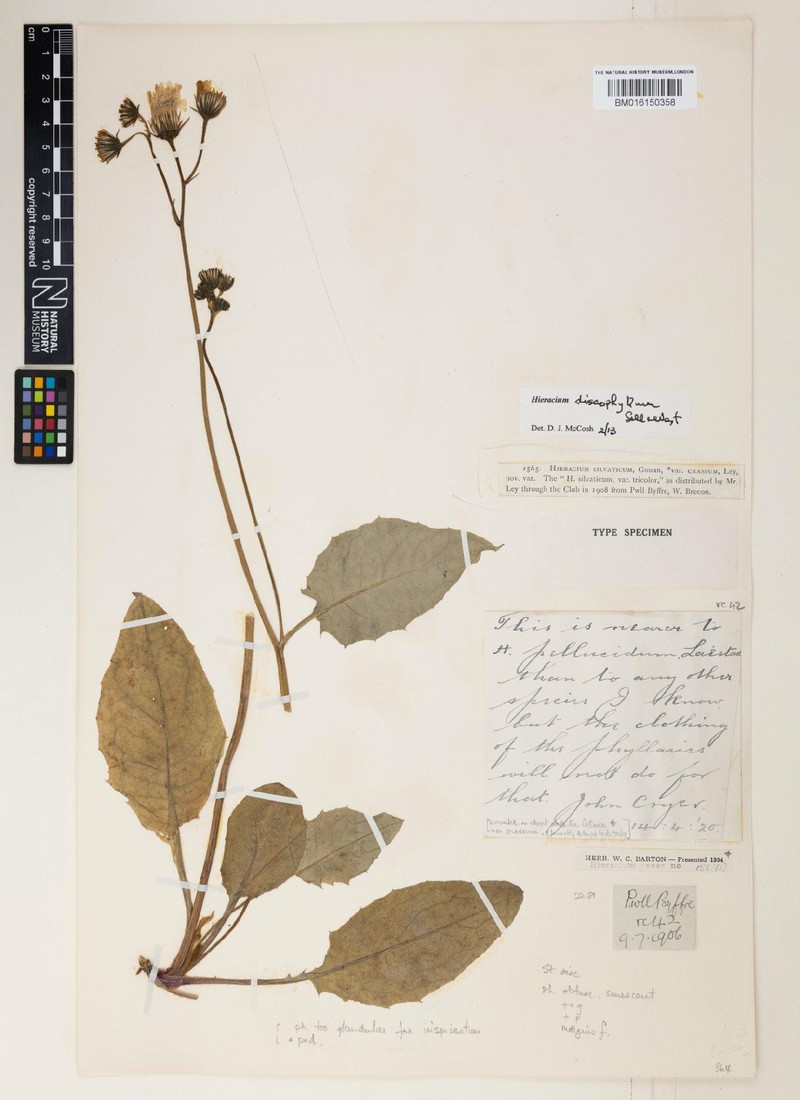 cm
0 1 2 3 4 5 6 7 8 9 10
copyright reserved
NATURAL
HISTORY
MUSEUM
THE NATURAL HISTORY MUSEUM, LONDON
BM016150358
Hieracium discophyllum
Sell & West
Det. D. J. McCosh 2/13
1565. HIERACIUM SILVATICUM, Gouan, *var. CRASSUM, Ley,
nov. var. The "H. silvaticum, var. tricolor," as distributed by Mr.
Ley through the Club in 1908 from Pwll Byffre, W. Brecon.
TYPE SPECIMEN
vc 42
This is nearer to
H. pellucidum, Laestad
than to any other
species I know
but the clothing
of the phyllaries
will not do for
that. John Cryer.
14.4.'20.
HERB. W. C. BARTON — Presented 1934
Hieracium
Pwll Byffre
vc 42
9.7.1906
St disc
Ph. obtuse. senescent
++g
+ p
margins f.
ph too glandular for
+ ped.